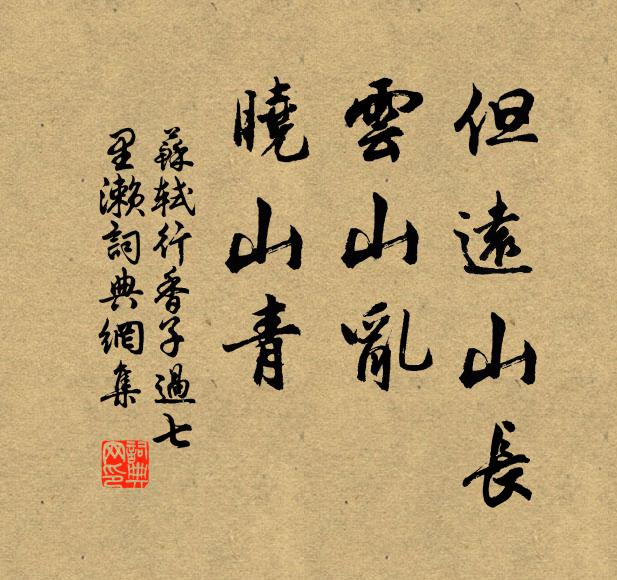 但遠山長
雲山亂
曉山青
蘇軾行香子過七
里瀨詞典網集
詞典
网印